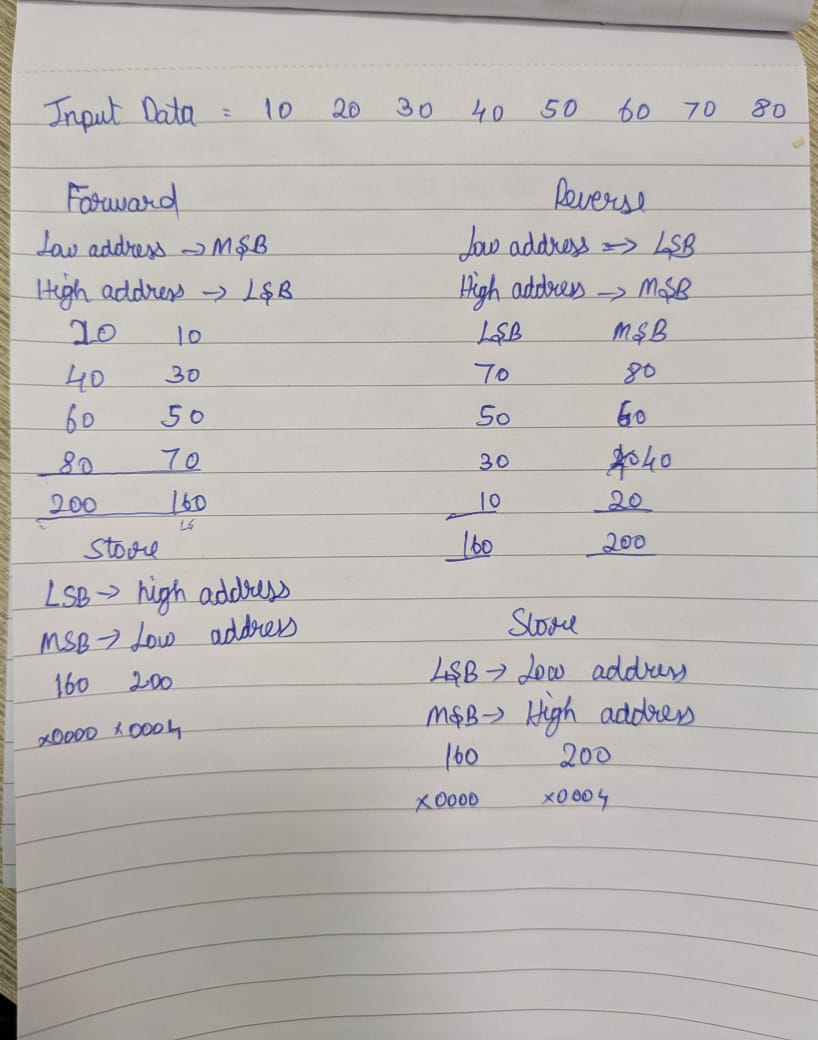 Input Data = 10 20 30 40 50 60 70 80
Forward
Low address → MSB
High address → LSB
20 10
40 30
60 50
80 70
200 160
Store
LSB → high address
MSB → Low address
160 200
x0000 x0004
Reverse
Low address => LSB
High address → MSB
LSB MSB
70 80
50 60
30 40
10 20
160 200
Store
LSB → Low address
MSB → High address
160 200
x0000 x0004